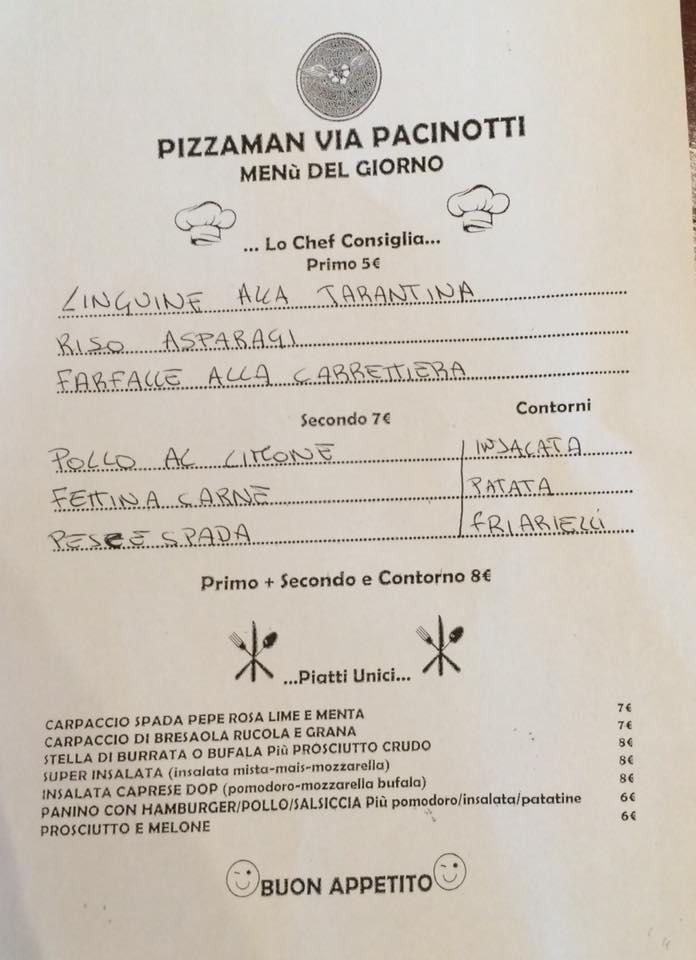 PIZZAMAN VIA PACINOTTI
MENù DEL GIORNO
... Lo Chef Consiglia...
Primo 5€
LINGUINE ALLA TARANTINA
RISO ASPARAGI
FARFALLE ALLA CARRETTIERA
Secondo 7€ Contorni
POLLO AL LIMONE INSALATA
FETTINA CARNE PATATA
PESCE SPADA FRIARIELLI
Primo + Secondo e Contorno 8€
...Piatti Unici...
CARPACCIO SPADA PEPE ROSA LIME E MENTA 7€
CARPACCIO DI BRESAOLA RUCOLA E GRANA 7€
STELLA DI BURRATA O BUFALA Più PROSCIUTTO CRUDO 8€
SUPER INSALATA (insalata mista-mais-mozzarella) 8€
INSALATA CAPRESE DOP (pomodoro-mozzarella bufala) 8€
PANINO CON HAMBURGER/POLLO/SALSICCIA Più pomodoro/insalata/patatine 6€
PROSCIUTTO E MELONE 6€
BUON APPETITO